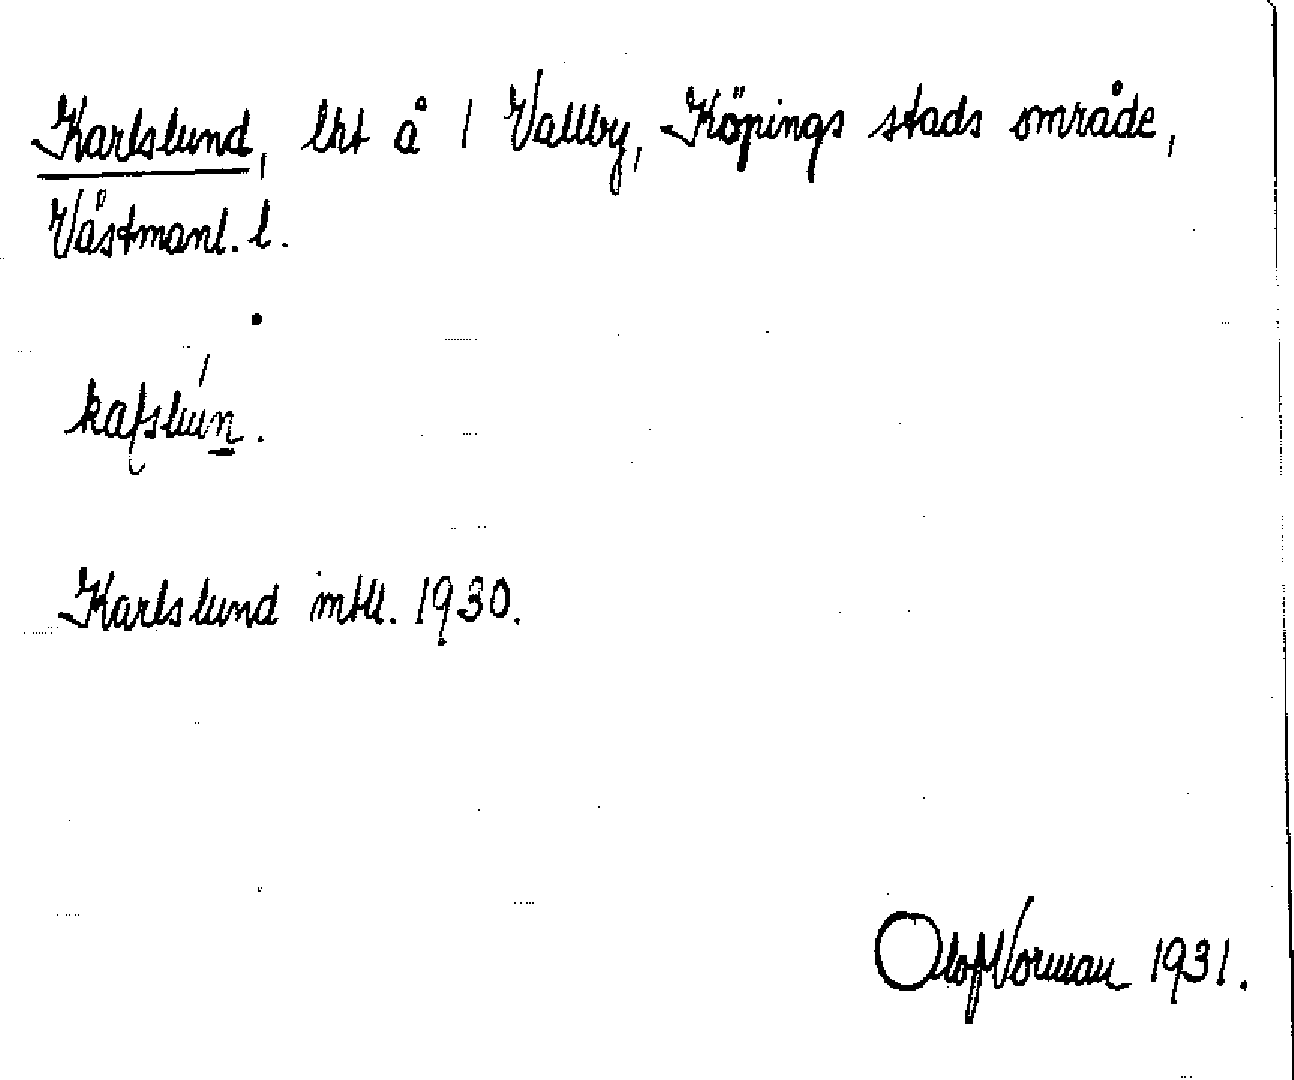 Karlslund, lht å 1 Vallby, Köpings stads område,
Västmanl. l.
Karlslund mtll. 1930.
Olof Norman 1931.